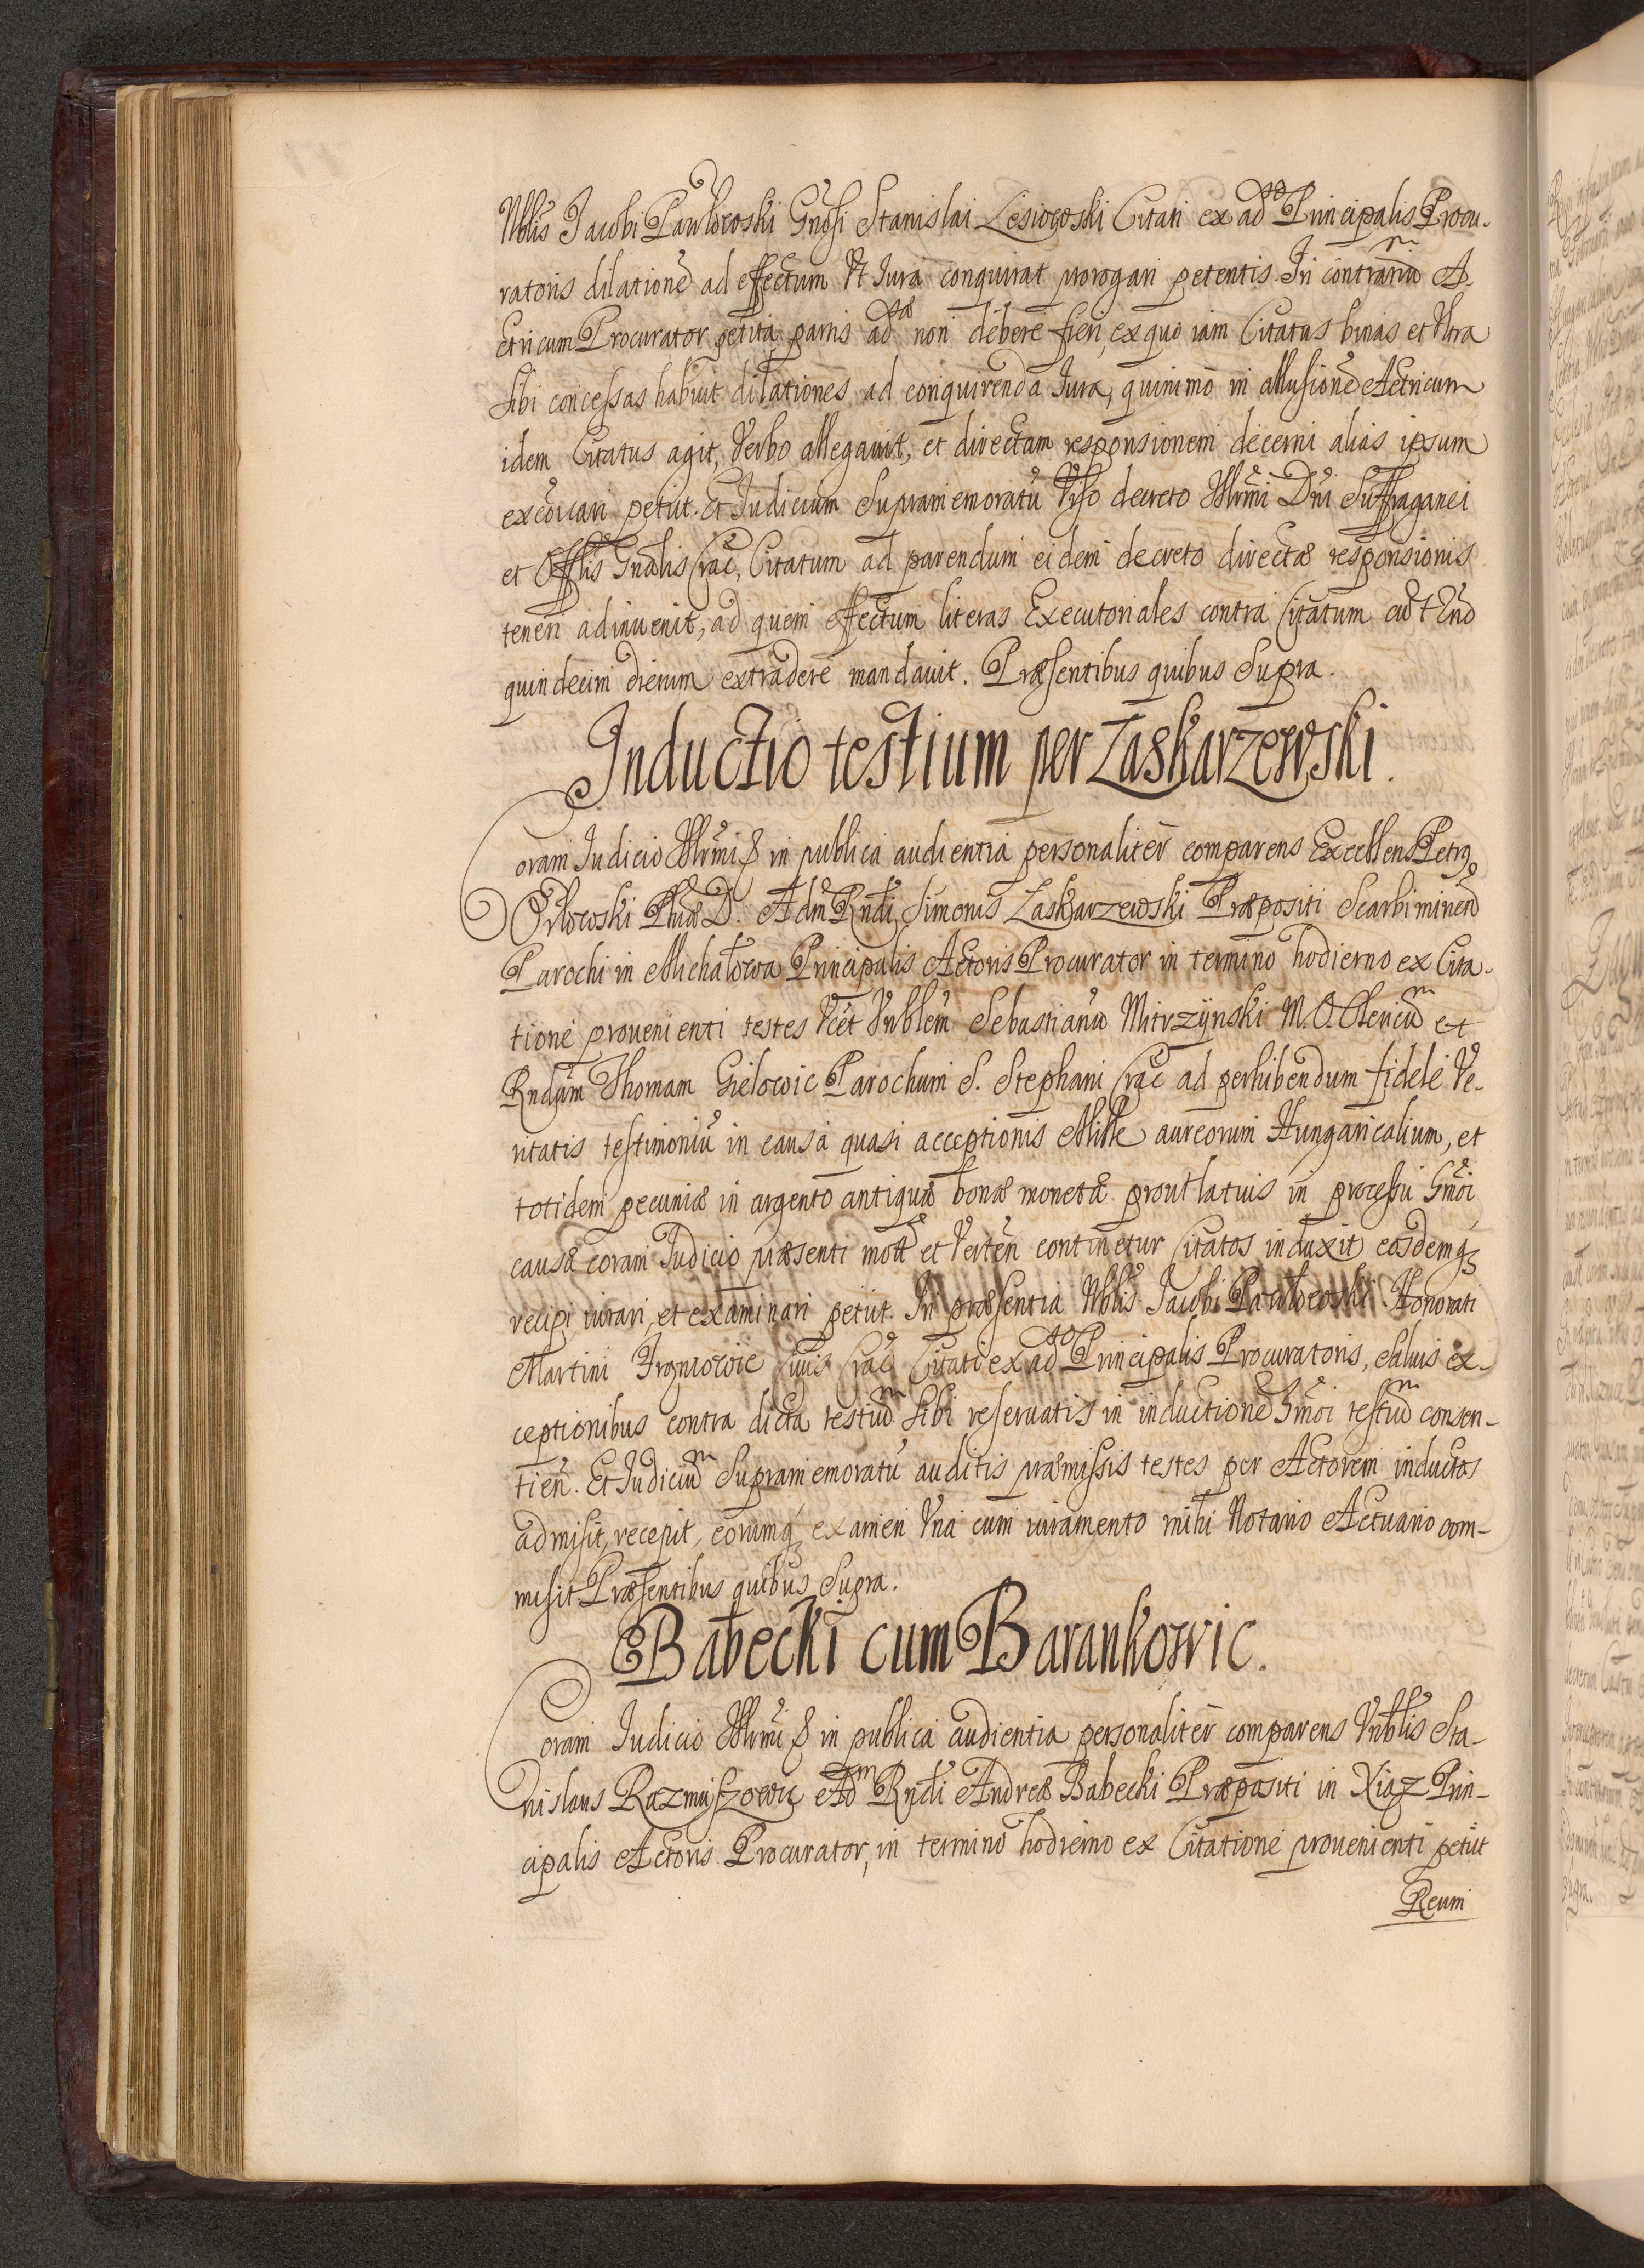 Nblis Jacobi Pawłowski Gnosi Stanislai Lesiowski Citati ex ad​so Principalis Procu-
ratoris dilationē ad effectum Vt Jura conquirat prorogari petentis. In contrariū A-
ctricum Procurator petita partis ad​sæ non debere fieri, ex quo iam Citatus binas et Vltra
sibi concessas habuit dilationes ad conquirenda Jura, quinimo in allusionē Actricum
idem Citatus agit, Verbo allegavit, et directam responsionem decerni alias ipsum
excōicari petiit. Et Judicium Supramemoratū Viso decreto Illrmi Dni Suffraganei
et Offlis Gnalis Crac, Citatum ad parendum eidem decreto directæ responsionis
teneri adinuenit, ad quem effectum literas Executoriales contra Citatum cū tēno
quindecim dierum extradere mandauit. Præsentibus quibus Supra.
Inductio testium per Zaskarzewski.
Coram Judicio Illrmi & in publica audientia personaliter comparens Excellens Petrus
Orłowski Phiæ D. Adm Rndi Simonis Zaskarzewski Præpositi Scarbimirien
Parochi in Michałowa Principalis Actoris Procurator in termino hodierno ex Cita-
tione prouenienti testes Vcet Vnblem Sebastianū Mitrzÿnski M. O. Clericū et
Rndum Thomam Gielowic Parochum S. Stephani Crac ad perhibendum fidele Ve-
ritatis testimoniū in causa quasi acceptionis Mille aureorum Hungaricalium, et
totidem pecuniæ in argento antiquæ bonæ monetæ prout latius in processu Hmōi
causæ coram Judicio præsenti motæ et Verten continetur Citatos induxit eosdemq
recipi, iurari, et examinari petiit. In præsentia Nblis Jacobi Pawłowski Honorati
Martini Frozniowic Ciuis Crac Citati ex ad​so Principalis Procuratoris, Saluis ex-
ceptionibus contra dicta testiū sibi reseruatis in inductionē Hmōi testiū consen-
tien. Et Judiciū Supramemoratū auditis præmissis testes per Actorem inductos
admisit, recepit, eorumq examen Vna cum iuramento mihi Notario Actuario com-
misit Præsentibus quibus Supra.
Babecki cum Barankowic.
Coram Judicio Illrmi & in publica audientia personaliter comparens Vnblis Sta-
nislaus Razmuszowic Adm Rndi Andreæ Babecki Præpositi in Xiaz Prin-
cipalis Actoris Procurator, in termino hodierno ex Citatione prouenienti petiit
Reum